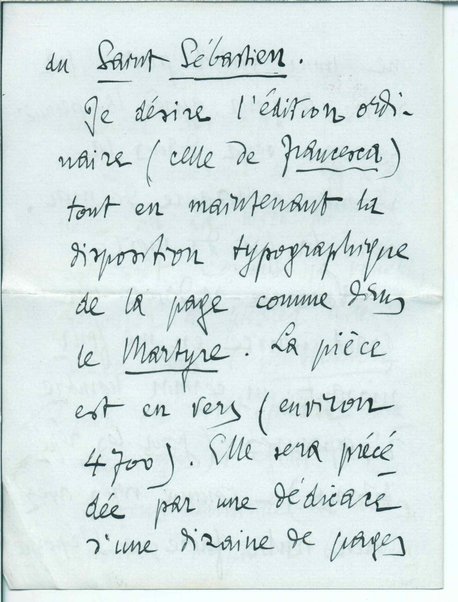 du Saint Sébastien.
Je désire l'édition ordi-
naire (celle de Francesca)
tout en maintenant la
disposition typographique
de la page comme dans
le Martyre. La pièce
est en vers (environ
4700). Elle sera précé-
dée par une dédicace
d'une dizaine de pages